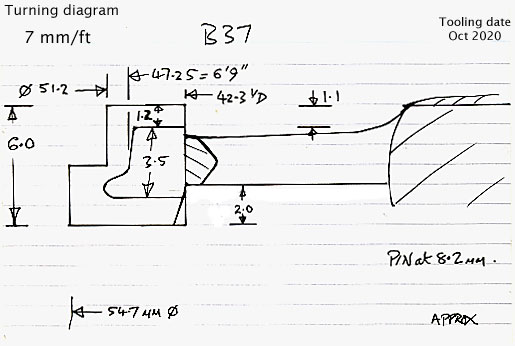 Turning diagram
7 mm/ft
B37
Tooling date
Oct 2020
47.25 = 6'9"
Ø 51.2
42.3 I/D
1.1
1.2
6.0
3.5
2.0
PIN at 8.2mm.
54.7 MM Ø
APPROX